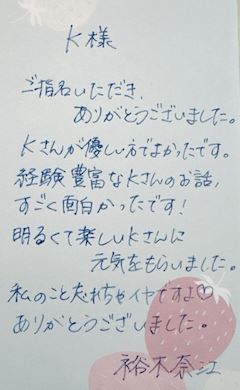 K様
ご指名いただき、
ありがとうございました。
Kさんが優しい方でよかったです。
経験豊富なKさんのお話、
すごく面白かったです！
明るくて楽しいKさんに
元気をもらいました。
私のこと忘れちゃイヤですよ♡
ありがとうございました。
裕木奈江